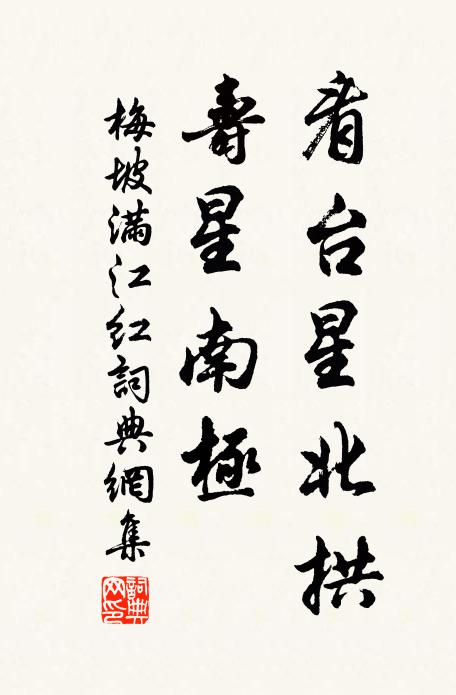 看台星北拱
壽星南極
梅坡滿江紅詞典網集
詞典網印